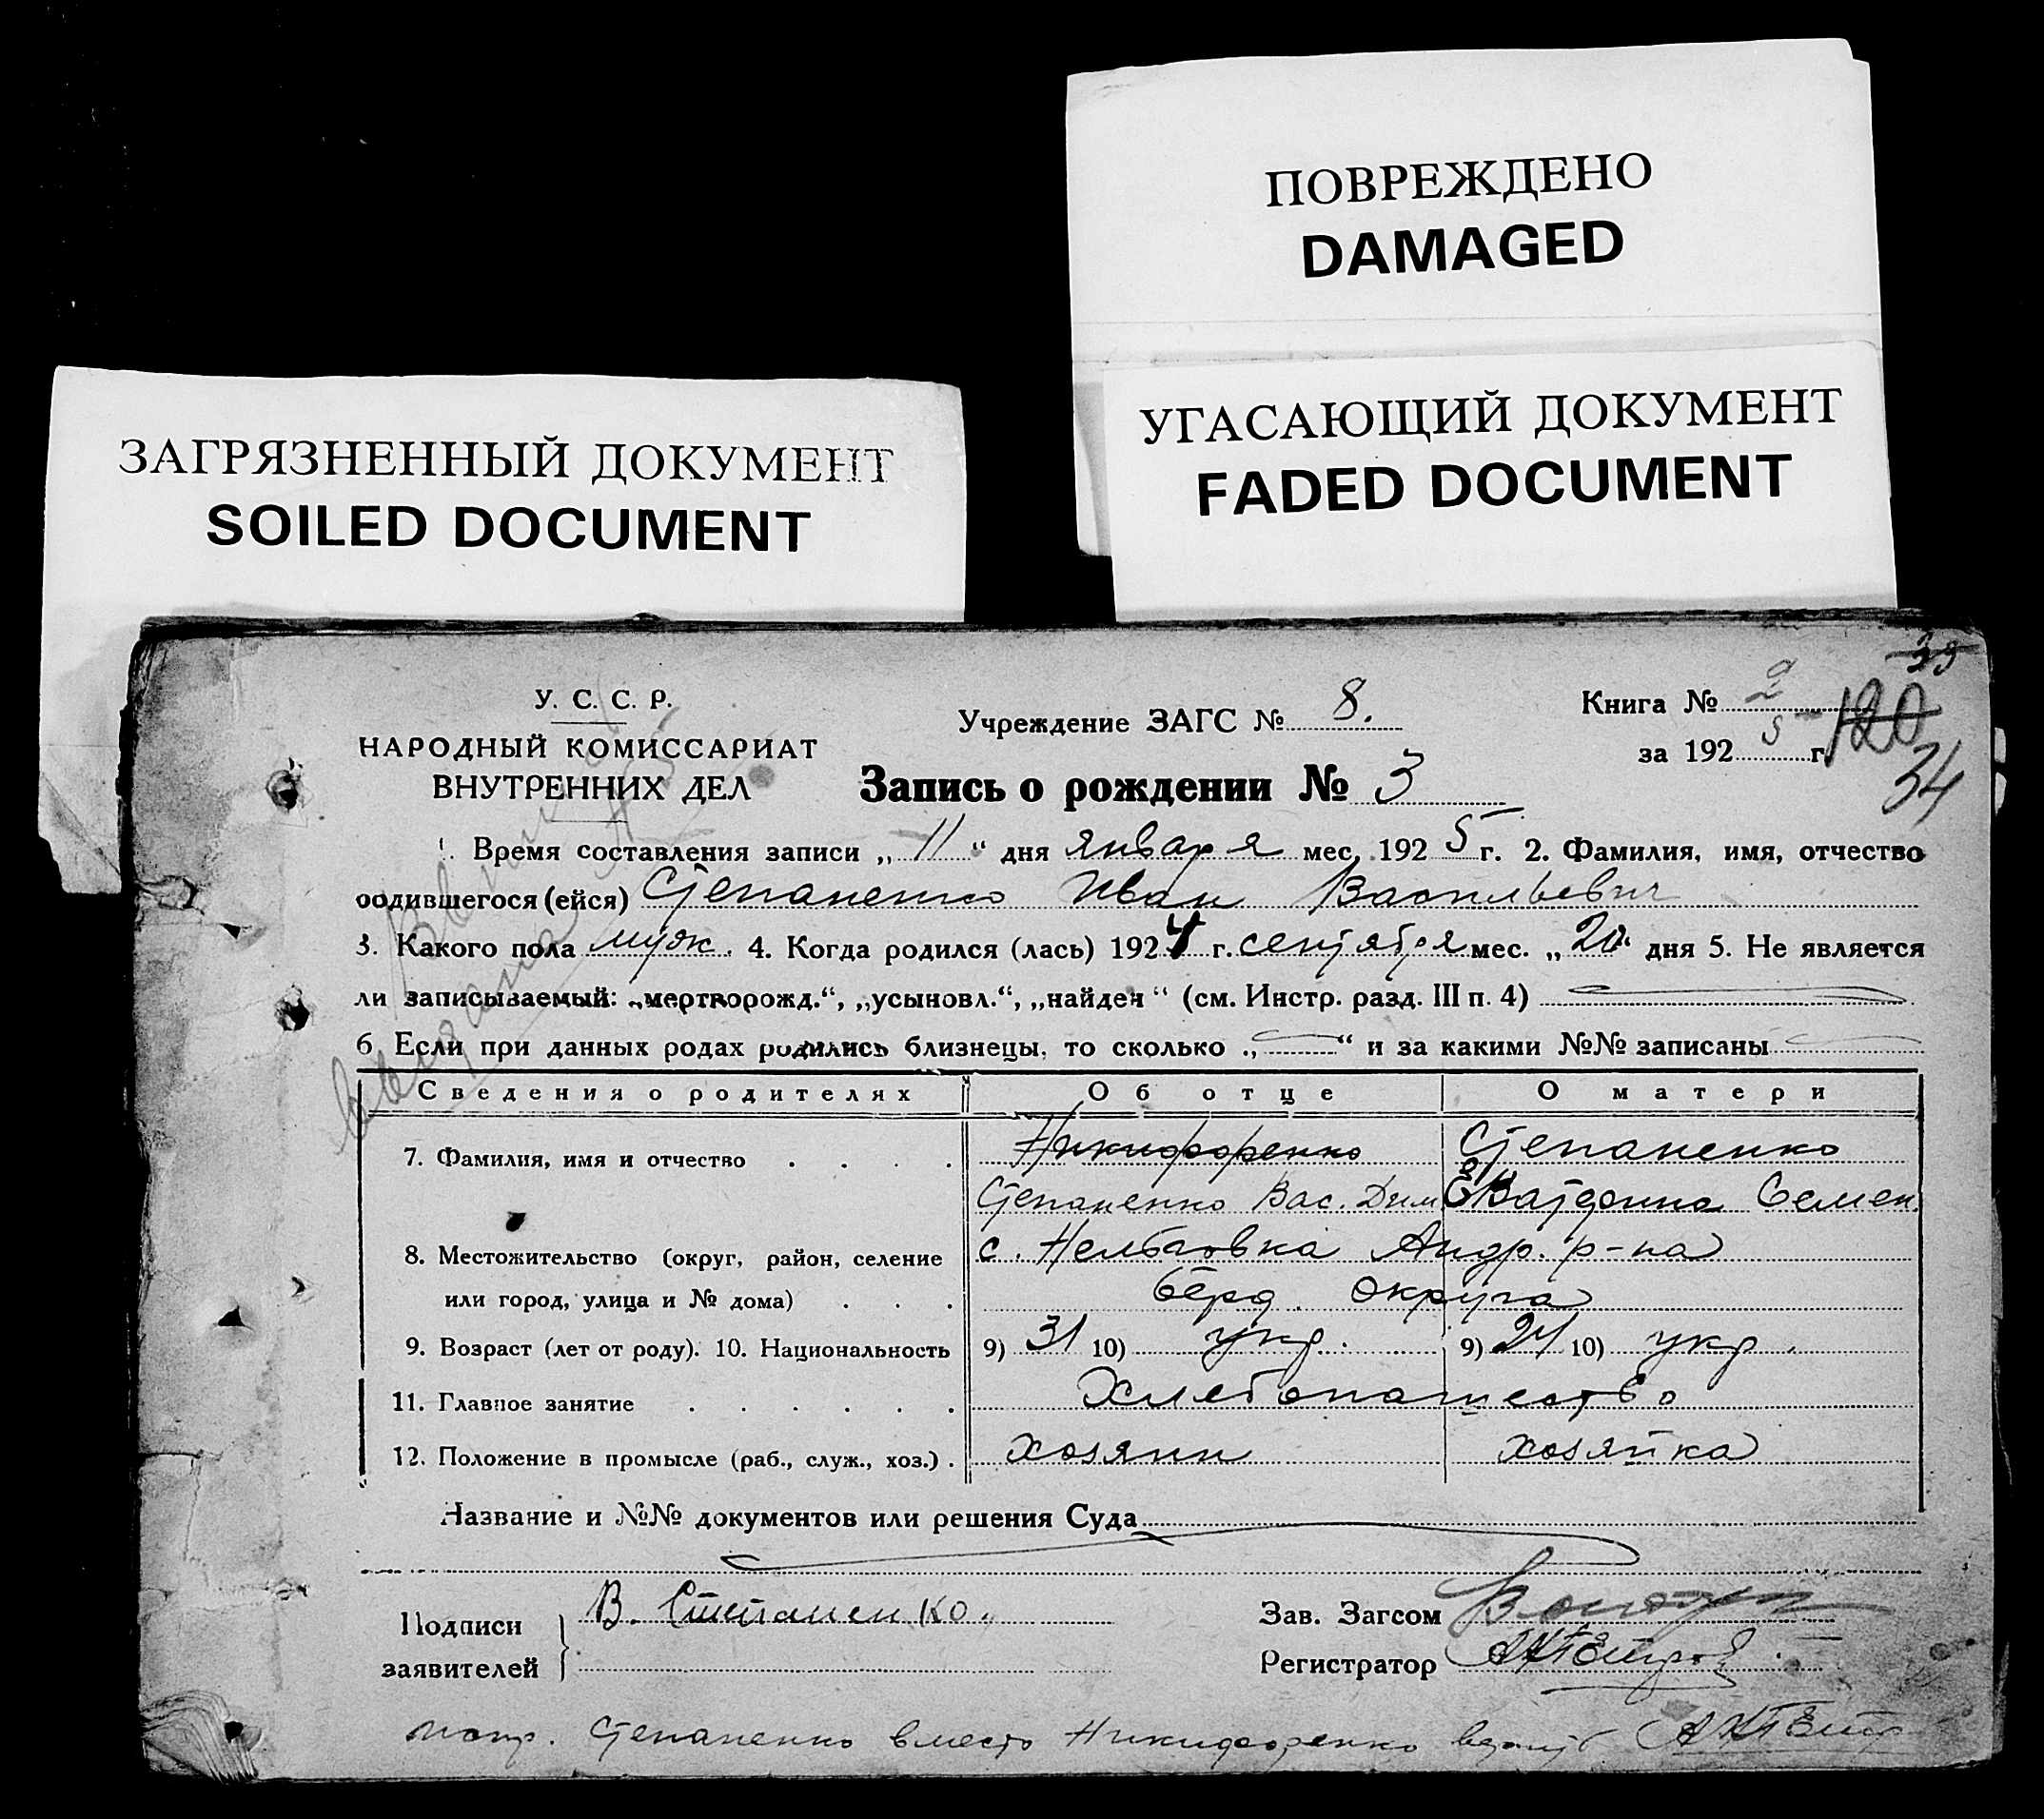 ПОВРЕЖДЕНО
DAMAGED
УГАСАЮЩИЙ ДОКУМЕНТ
FADED DOCUMENT
ЗАГРЯЗНЕННЫЙ ДОКУМЕНТ
SOILED DOCUMENT
39
У. С. С. Р.
НАРОДНЫЙ КОМИССАРИАТ
ВНУТРЕННИХ ДЕЛ
Учреждение ЗАГС № 8.
Книга № 2
за 1925 г.
120
34
Запись о рождении № 3
1. Время составления записи „11“ дня января мес. 1925 г. 2. Фамилия, имя, отчество
родившегося (ейся) Степаненко Иван Васильевич
3. Какого пола муж. 4. Когда родился (лась) 1924 г. сентября мес. „20 дня 5. Не является
ли записываемый: „мертворожд.“, „усыновл.“, „найден“ (см. Инстр. разд. III п. 4)
6 Если при данных родах родились близнецы, то сколько „ “ и за какими №№ записаны
Сведения о родителях Об отце О матери
7. Фамилия, имя и отчество . . . . Никифоренко Степаненко
Степаненко Вас. Дим Екатерина Семен.
8. Местожительство (округ, район, селение с. Нельговка Андр. р-на
или город, улица и № дома) . . . Берд. округа
9. Возраст (лет от роду). 10. Национальность 9) 31 10) укр. 9) 24 10) укр.
11. Главное занятие . . . . . . Хлебопашество
12. Положение в промысле (раб., служ., хоз.) . хозяин хозяйка
Название и №№ документов или решения Суда
Подписи
заявителей
В. Степаненко.
Зав. Загсом
Регистратор
Степаненко вместо Никифоренко